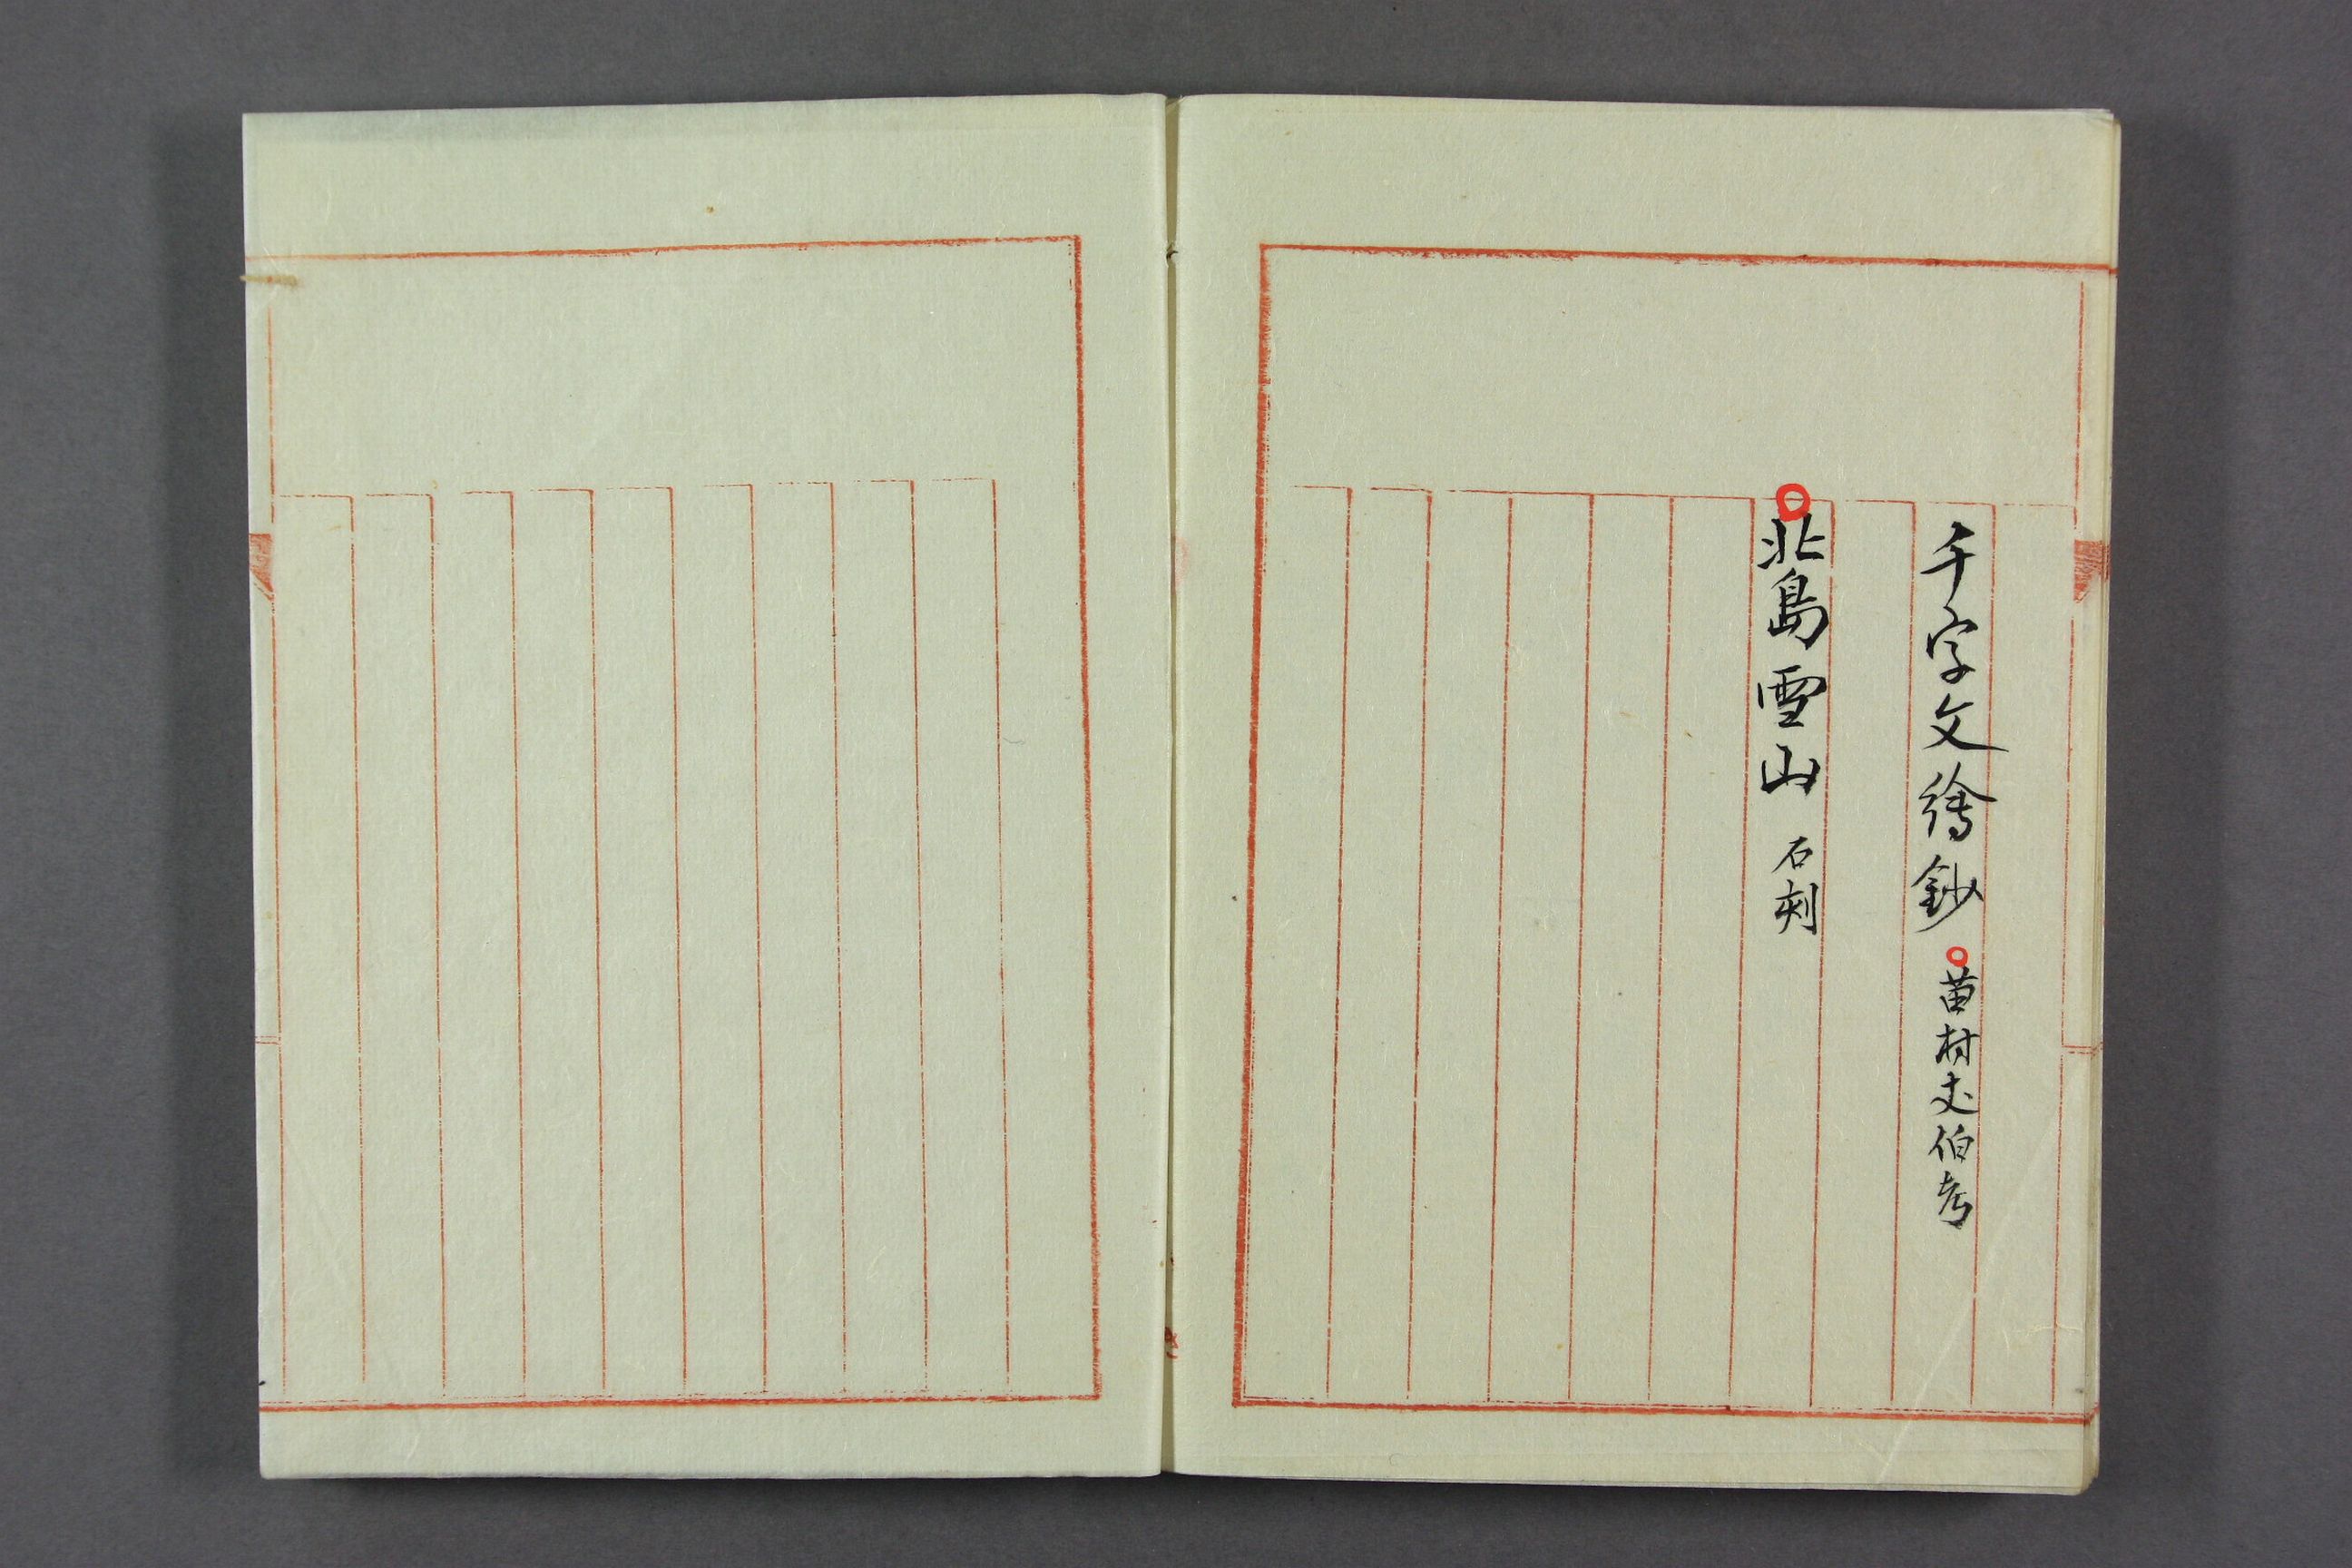 千字文繪鈔 ○苗村丈伯考
○北島雪山 石刻